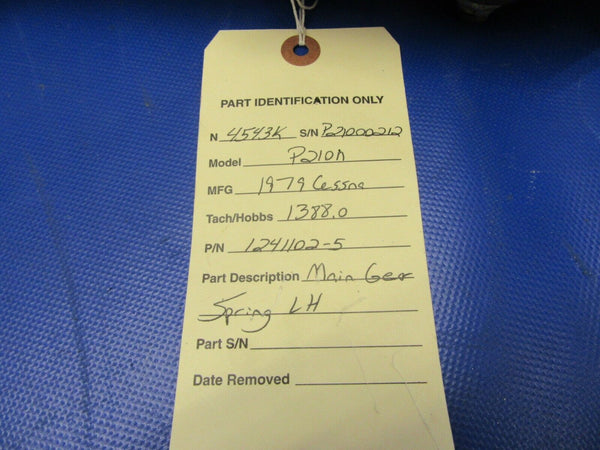 PART IDENTIFICATION ONLY
N 4543K S/N P21000212
Model P210N
MFG 1979 Cessna
Tach/Hobbs 1388.0
P/N 1241102-5
Part Description Main Gear
Spring LH
Part S/N
Date Removed